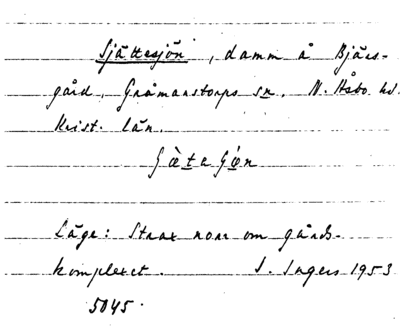 Sjättesjön, damm å Bjärs-
gård, Gråmanstorps sn, N. Åsbo hd.
Krist. län.
Läge: Strax norr om gårds-
komplexet. I. Ingers 1953
5045.